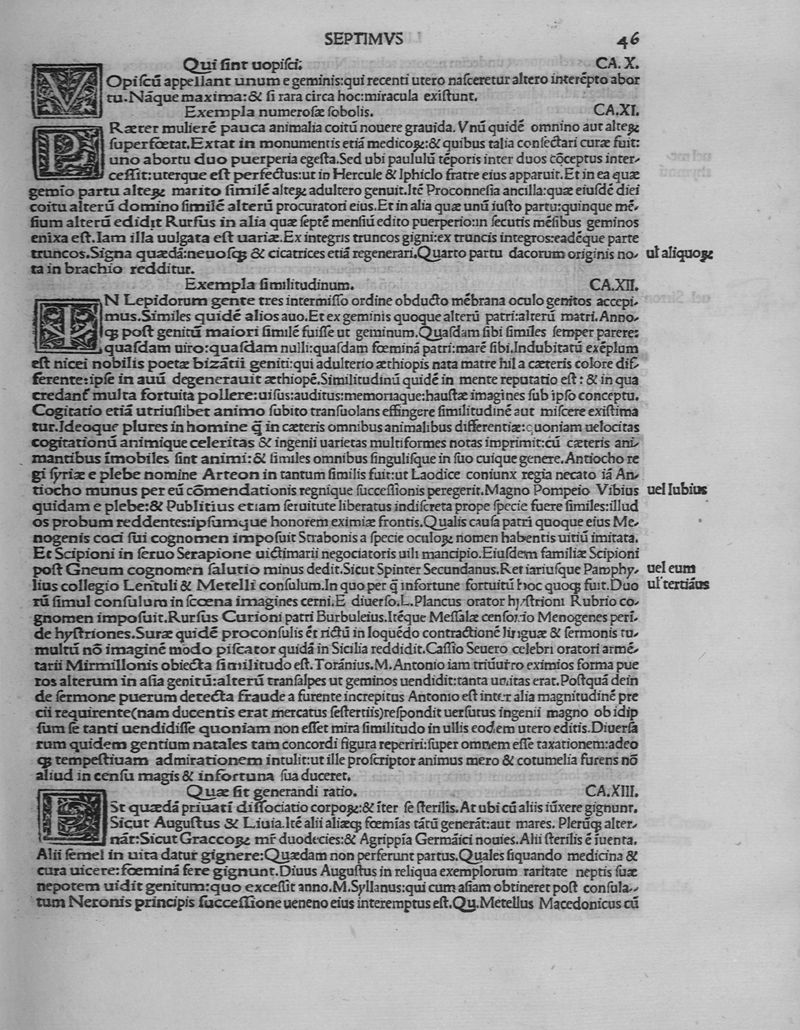 SEPTIMVS 46
Qui ſint uopiſci. CA. X.
VOpiſcū appellant unum e geminis:qui recenti utero naſceretur altero interēpto abor
tu. Nāque maxima:& ſi rara circa hoc:miracula exiſtunt.
Exempla numeroſæ ſobolis. CA.XI.
PRæter mulierē pauca animalia coitū nouere grauida. Vnū quidē omnino aut alteꝝ
ſuperfœtat.Extat in monumentis etiā medicoꝝ:& quibus talia conſectari curæ fuit:
uno abortu duo puerperia egeſta.Sed ubi paululū tēporis inter duos cōceptus inter⸗
ceſſit:uterque eſt perfectus:ut in Hercule & Iphiclo fratre eius apparuit.Et in ea quæ
gemīo partu alteꝝ marito ſimilē alteꝝ adultero genuit.Itē Proconneſia ancilla:quæ eiuſdē diei
coitu alterū domino ſimilē alterū procuratori eius.Et in alia quæ unū iuſto partu:quinque mē⸗
ſium alterū edidit Rurſus in alia quæ ſeptē menſiū edito puerperio:in ſecutis mēſibus geminos
enixa eſt.Iam illa uulgata eſt uariæ.Ex integris truncos gigni:ex truncis integros:eadēque parte
truncos.Signa quædā:neuoſq; & cicatrices etiā regenerari.Quarto partu dacorum originis no⸗ ul̄ aliquoꝝ
ta in brachio redditur.
Exempla ſimilitudinum. CA.XII.
IN Lepidorum gente tres intermiſſo ordine obducto mēbrana oculo genitos accepi⸗
mus.Similes quidē alios auo.Et ex geminis quoque alterū patri:alterū matri.Anno⸗
q; poſt genitū maiori ſimilē fuiſſe ut geminum.Quaſdam ſibi ſimiles ſemper parere:
quaſdam uiro:quaſdam nulli:quaſdam fœminā patri:marē ſibi.Indubitatū exēplum
eſt nicei nobilis poetæ bizātii geniti:qui adulterio æthiopis nata matre hil a cæteris colore diſ⸗
ferente:ipſe in auū degenerauit æthiopē.Similitudinū quidē in mente reputatio eſt : & in qua
credanť multa fortuita pollere:uiſus:auditus:memoriaque:hauſtæ imagines ſub ipſo conceptu.
Cogitatio etiā utriuſlibet animo ſubito tranſuolans effingere ſimilitudinē aut miſcere exiſtima
tur.Ideoque plures in homine q̄ in cæteris omnibus animalibus differentiæ:quoniam uelocitas
cogitationū animique celeritas & ingenii uarietas multiformes notas imprimit:cū cæteris ani⸗
mantibus īmobiles ſint animi:& ſimiles omnibus ſinguliſque in ſuo cuique genere.Antiocho re
gi ſyriæ e plebe nomine Arteon in tantum ſimilis fuit:ut Laodice coniunx regia necato iā An⸗
tiocho munus per eū cōmendationis regnique ſucceſſionis peregerit.Magno Pompeio Vibius uel Iubius
quidam e plebe:& Publitius etiam ſeruitute liberatus indiſcreta prope ſpecie fuere ſimiles:illud
os probum reddentes:ipſumque honorem eximiæ frontis.Qualis cauſa patri quoque eius Me⸗
nogenis coci ſui cognomen impoſuit Strabonis a ſpecie oculoꝝ nomen habentis uitiū imitata.
Et Scipioni in ſeruo Serapione uictimarii negociatoris uili mancipio.Eiuſdem familiæ Scipioni
poſt Gneum cognomen ſalutio minus dedit.Sicut Spinter Secundanus.Retiariuſque Pamphy⸗ uel eum
lius collegio Lentuli & Metelli conſulum.In quo per q̄ infortune fortuitū hoc quoq; fuit.Duo ul̄ tertiāus
rū ſimul conſulum in ſcœna imagines cerni.E diuerſo.L.Plancus orator hyſtrioni Rubrio co⸗
gnomen impoſuit.Rurſus Curioni patri Burbuleius.Itēque Meſſalæ cenſorio Menogenes perī⸗
de hyſtriones.Suræ quidē proconſulis ēt rictū in loquēdo contractionē linguæ & ſermonis tu⸗
multū nō imaginē modo piſcator quidā in Sicilia reddidit.Caſſio Seuero celebri oratori armē⸗
tarii Mirmillonis obiecta ſimilitudo eſt.Torānius.M.Antonio iam triūuiro eximios forma pue
ros alterum in aſia genitū:alterū tranſalpes ut geminos uendidit:tanta unitas erat.Poſtquā dein
de ſermone puerum detecta fraude a furente increpitus Antonio eſt inter alia magnitudinē pre
cii requirente(nam ducentis erat mercatus ſeſtertiis)reſpondit uerſutus ingenii magno ob id ip
ſum ſe tanti uendidiſſe quoniam non eſſet mira ſimilitudo in ullis eodem utero editis.Diuerſa
rum quidem gentium natales tam concordi figura reperiri:ſuper omnem eſſe taxationem:adeo
q; tempeſtiuam admirationem intulit:ut ille proſcriptor animus mero & cōtumelia furens nō
aliud in cenſu magis & infortuna ſua duceret.
Quæ ſit generandi ratio. CA.XIII.
ESt quædā priuati diſſociatio corpoꝝ:& īter ſe ſterilis.At ubi cū aliis iūxere gignunt.
Sicut Auguſtus & Liuia.Itē alii aliæq; fœmīas tātū generāt:aut mares. Plerūq; alter⸗
nāt:Sicut Graccoꝝ mr̄ duodecies:& Agrippīa Germāici nouies.Alii ſterilis ē iuenta.
Alii ſemel in uita datur gignere:Quædam non perferunt partus.Quales ſiquando medicina &
cura uicere:fœminā fere gignunt.Diuus Auguſtus in reliqua exemplorum raritate neptis ſuæ
nepotem uidit genitum:quo exceſſit anno.M.Syllanus:qui cum aſiam obtineret poſt conſula⸗
tum Neronis principis ſucceſſione ueneno eius interemptus eſt.Qu.Metellus Macedonicus cū